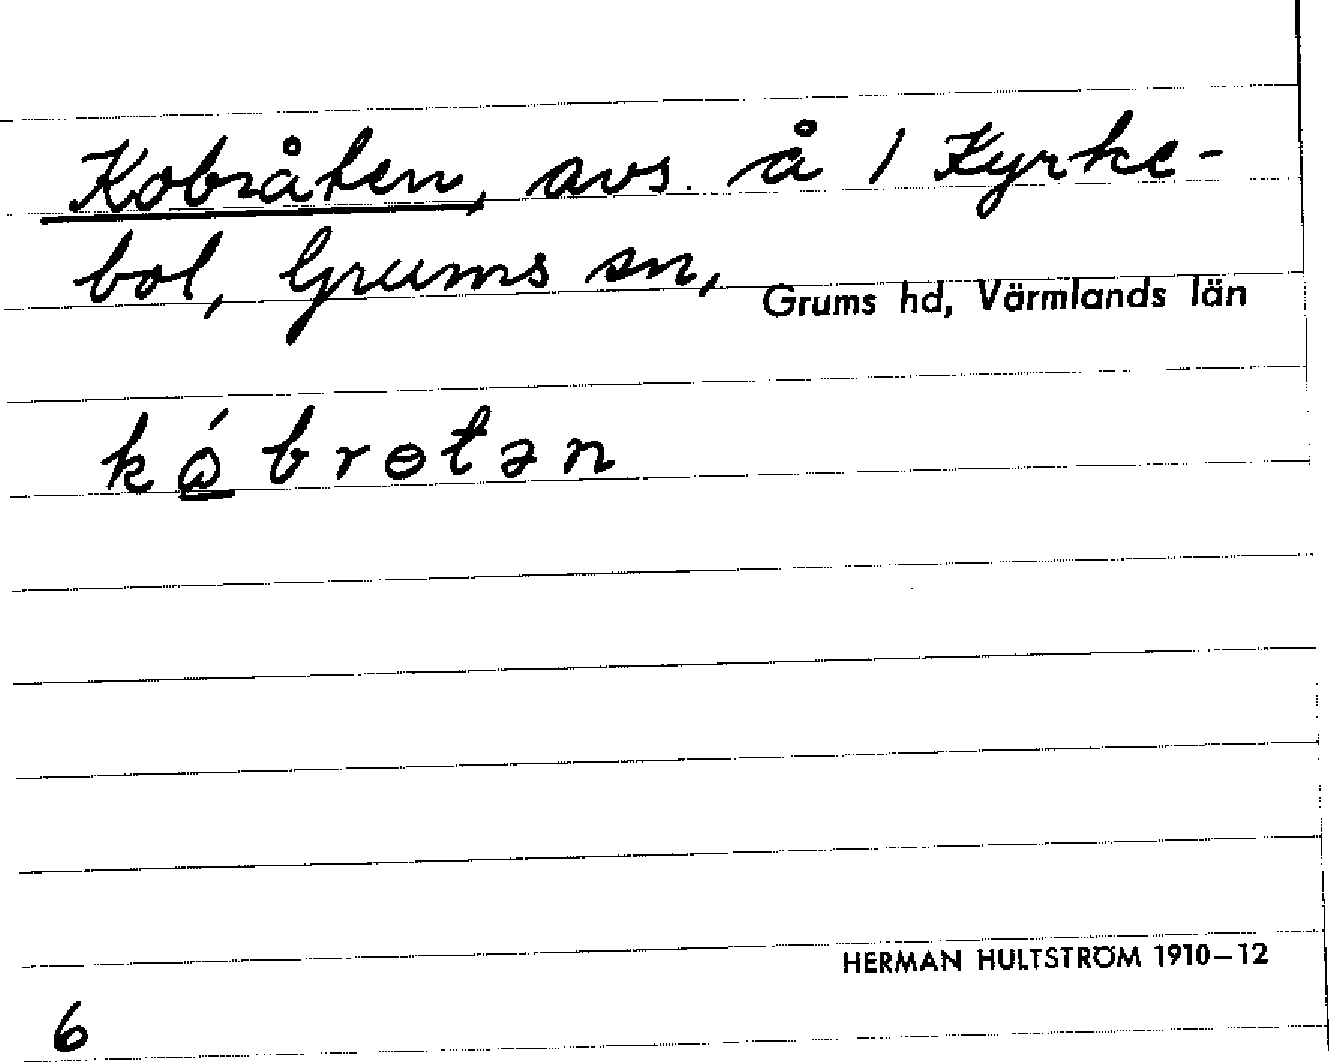 Kobråten, avs. å 1 Kyrke-
bol, Grums sn, Grums hd, Värmlands län
kǫ́brɵtən
HERMAN HULTSTRÖM 1910–12
6